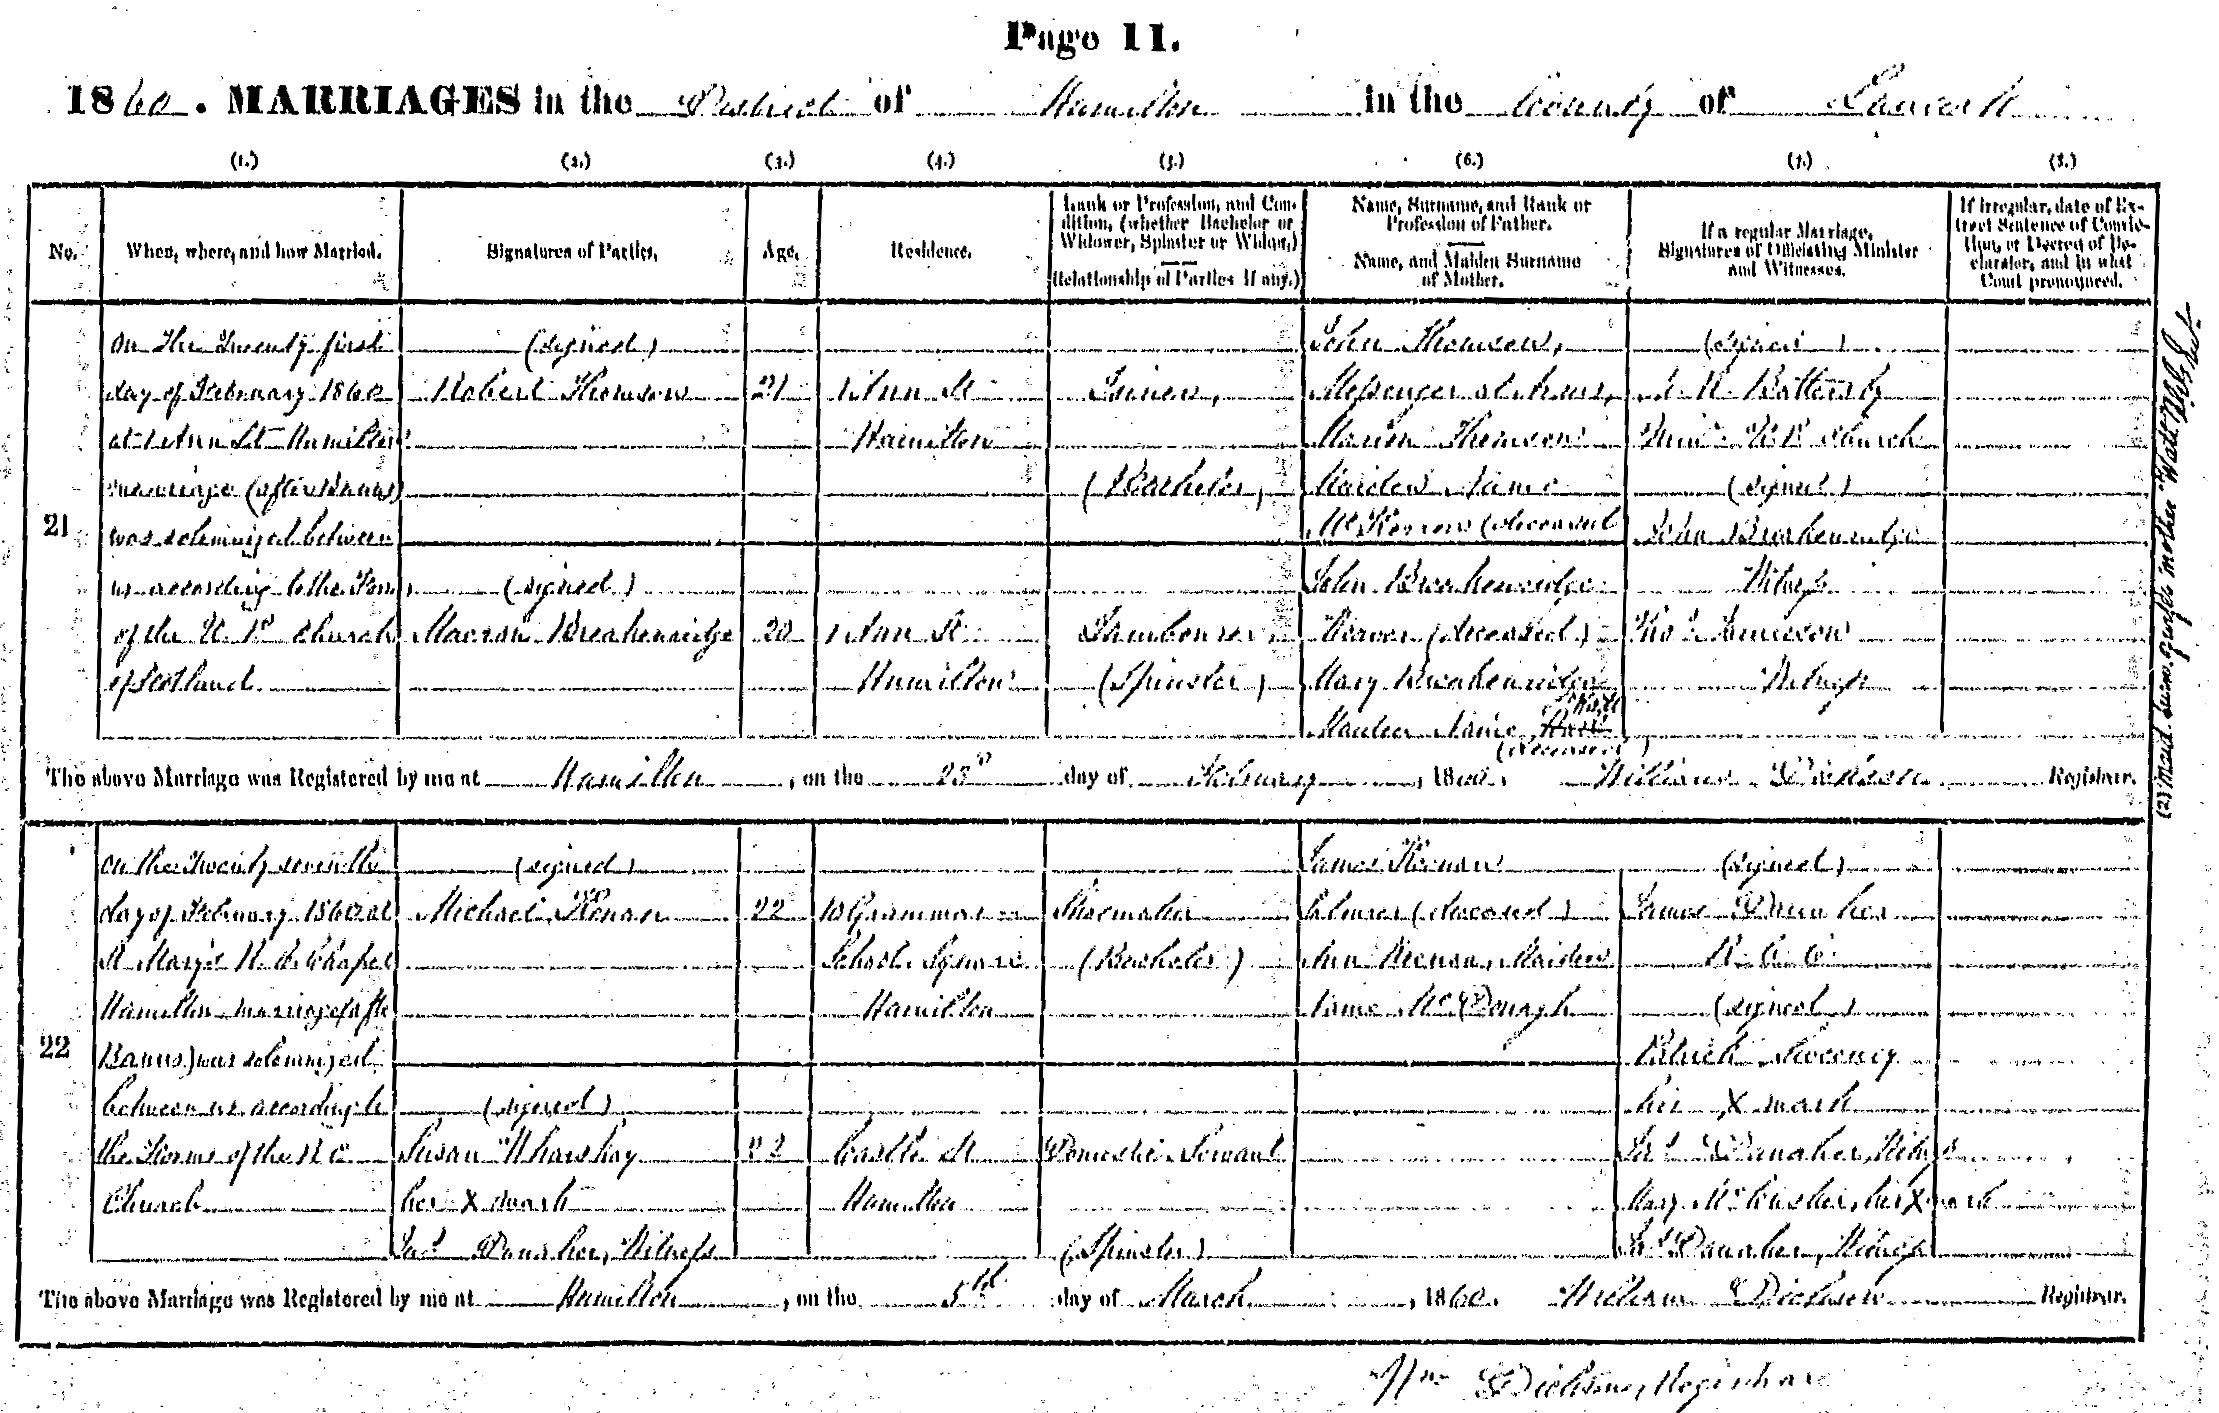 Page 11.
1860. MARRIAGES in the District of Hamilton in the County of Lanark
(1.) (2.) (3.) (4.) (5.) (6.) (7.) (8.)
No.
When, where, and how Married.
Signatures of Parties.
Age.
Residence.
Rank or Profession, and Con-
dition, (whether Bachelor or
Widower, Spinster or Widow,)
Relationship of Parties if any.)
Name, Surname, and Rank or
Profession of Father.
Name, and Maiden Surname
of Mother.
If a regular Marriage,
Signatures of Officiating Minister
and Witnesses.
If irregular, date of Ex-
tract Sentence of Convic-
tion, or Decree of De-
clarator, and in what
Court pronounced.
21
on the Twenty first
day of February 1860
at 1 Ann St Hamilton
marriage (after Banns)
was solemnized between
us according to the Form
of the U. P. Church
of Scotland
(signed)
Robert Thomson
(signed)
Marion Breakenridge
21
20
1 Ann St
Hamilton
1 Ann St
Hamilton
Joiner,
(Bachelor)
Tambourer
(Spinster)
John Thomson,
Messenger at Arms,
Marion Thomson
Maiden Name
(deceased
John Breakenridge
Weaver (deceased)
Mary Breakenridge
Maiden Name
(deceased)
(signed)
Battersby
Minr U. P. Church
(signed)
John Breakenridge
Witness
Thos Jamieson
Witness
(2) Maid. Surn. of wife's mother
The above Marriage was Registered by me at Hamilton, on the 23d day of February, 1860. William Dickson Registrar.
22
on the Twenty seventh
day of February 1860 at
St Mary's R. C. Chapel
Hamilton marriage (after
Banns) was solemnized
between us according to
the Forms of the R C
Church
(signed)
Michael Kenan
(signed)
Susan
her X mark
Jas Danaher, Witness
22
22
Grammar
School Square
Hamilton
Castle St
Hamilton
Shoemaker
(Bachelor)
Domestic Servant
(Spinster)
James Keenan
Labourer (deceased)
Ann Keenan Maiden
Name McDonagh
(signed)
James Danaher
R. C. C.
(signed)
Patrick Sweeney
his X mark
Jas Danaher, Witness
Mary McCusker, her X mark
Jas Danaher, Witness
The above Marriage was Registered by me at Hamilton, on the 5th day of March, 1860. William Dickson Registrar.
Wm Dickson, Registrar